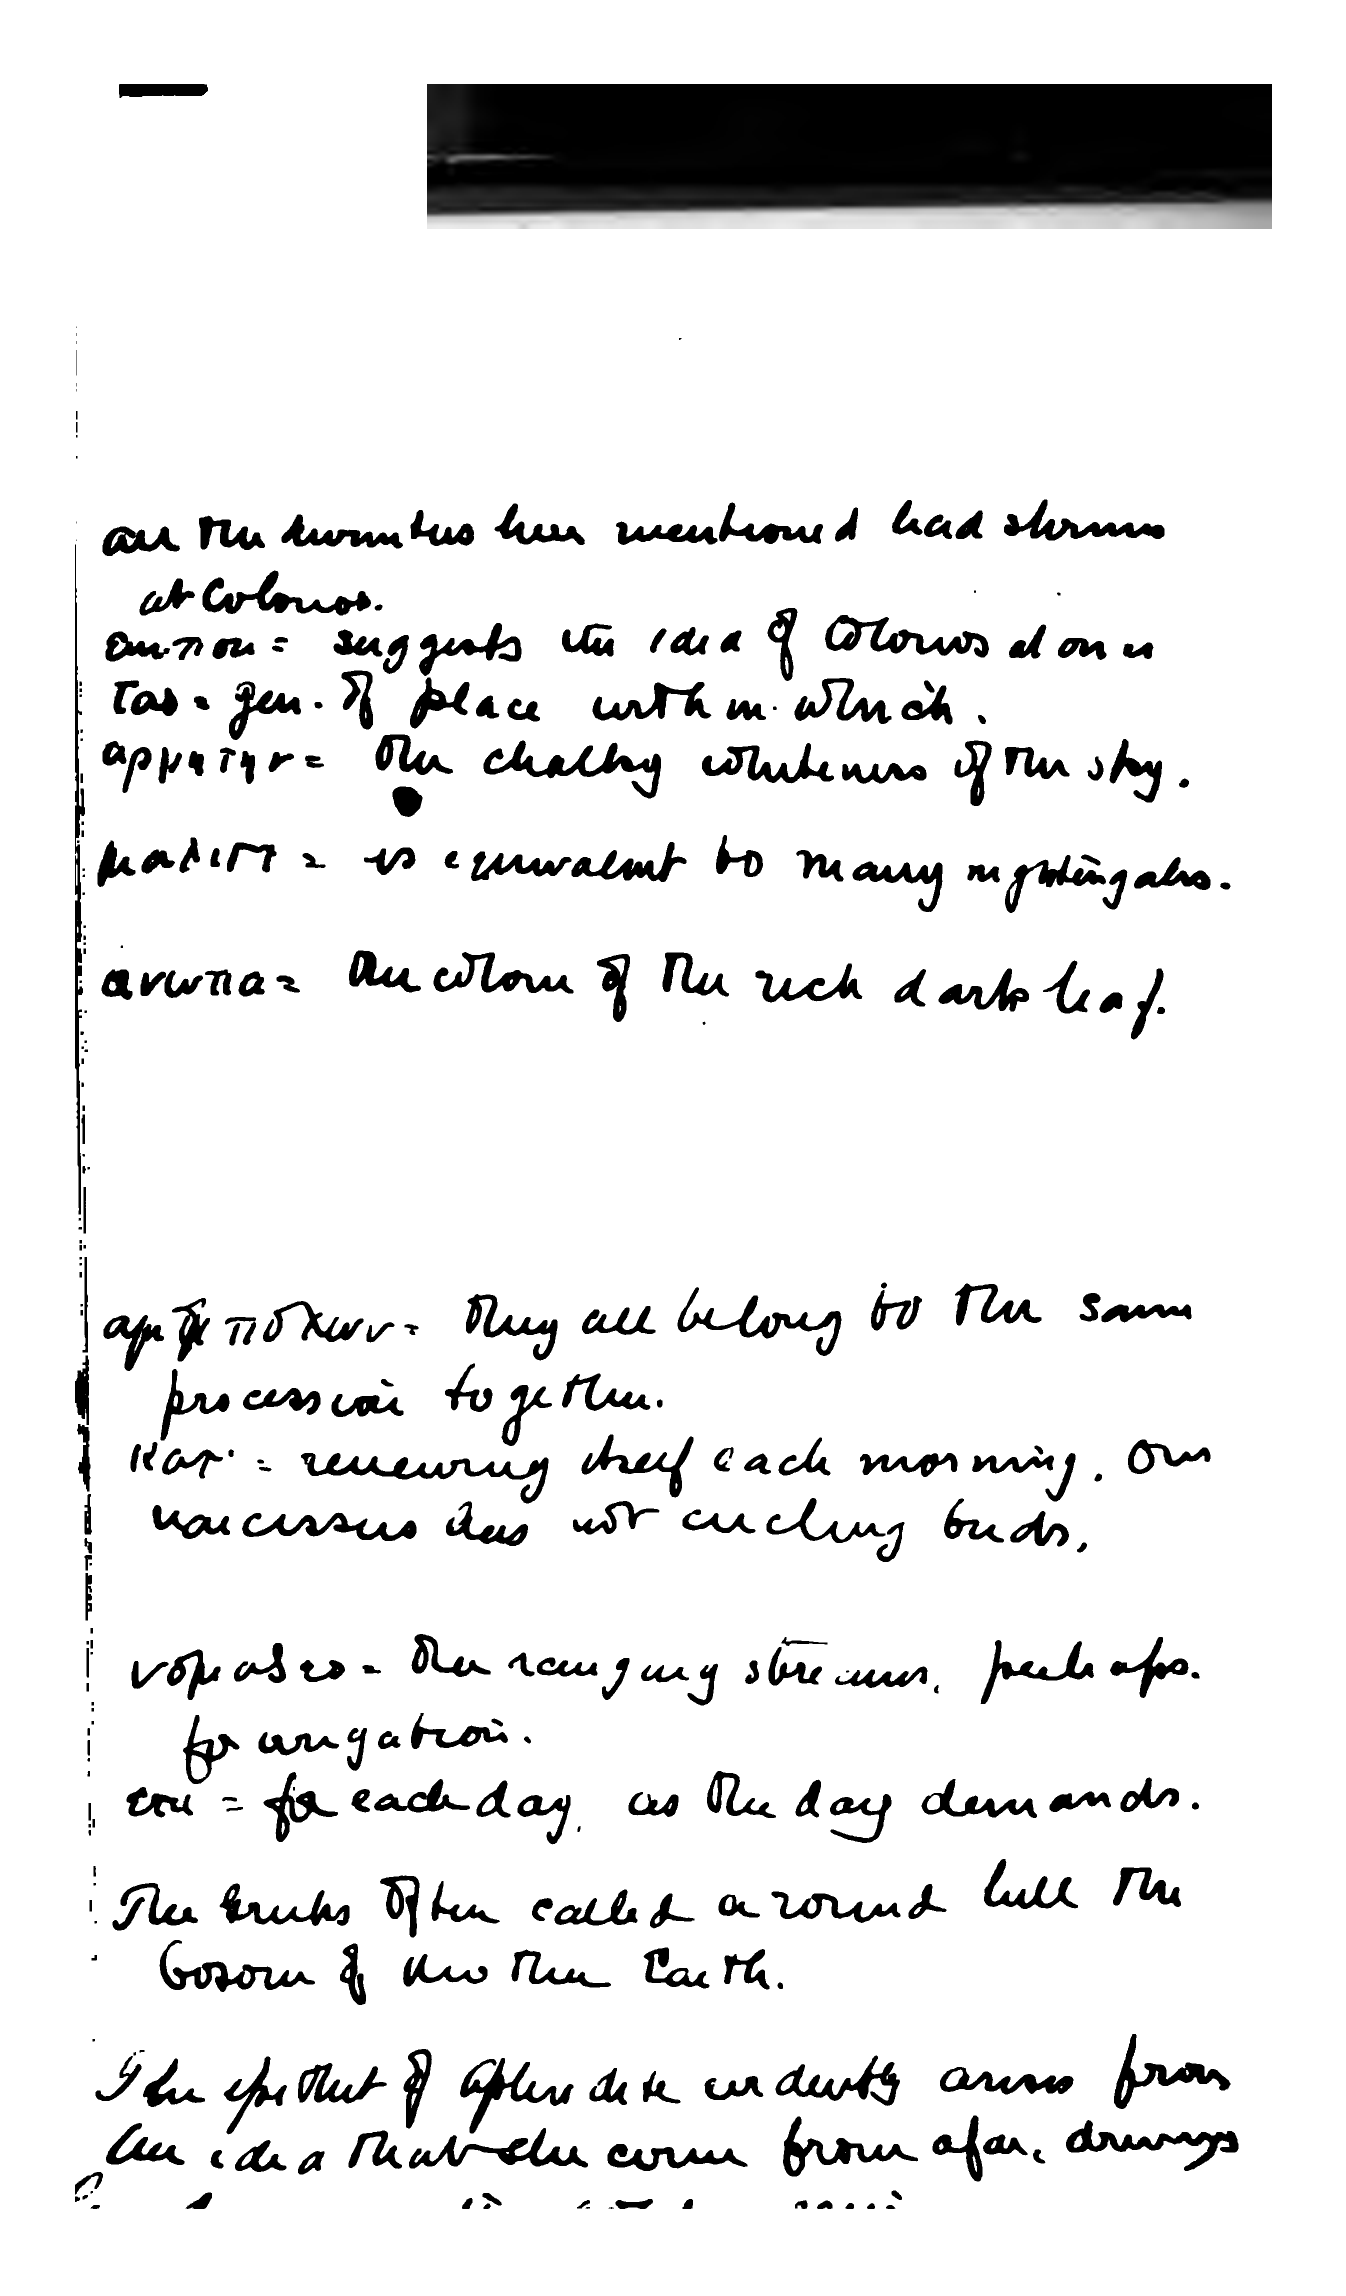 all the divinities here mentioned had shrines
at Colonos.
= suggests the idea of Colonos alone
τας = gen. of place within which.
αργητην = the chalky whiteness of the sky.
μαλιστ = is equivalent to many nightingales.
ανωπα = the colour of the rich dark leaf.
αμφιπολων = they all belong to the same
procession together.
κατ' = renewing itself each morning. Our
narcissus has not circling buds.
νομαδες = the ranging streams, perhaps
for irrigation.
επι = for each day, as the day demands.
The Greeks often called a round hill the
bosom of mother Earth.
The epithet of Aphrodite evidently arises from
the idea that she come from afar, driving